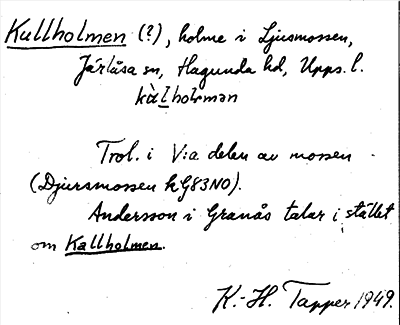 Kullholmen (?), holme i Ljusmossen,
Järlåsa sn, Hagunda hd, Upps. l.
kàlholmən
Trol. i V:a delen av mossen
(Djursmossen k G83NO).
Andersson i Granås talar i stället
om Kallholmen.
K.-H. Tapper 1949.